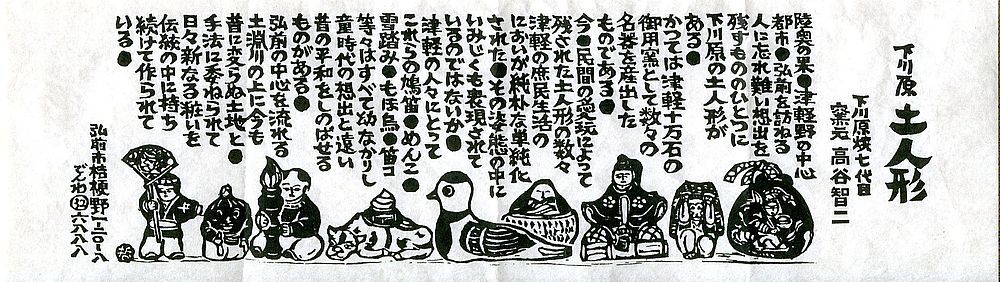 下川原 土人形
下川原焼七代目
窯元 高谷智二
陸奥の果●津軽野の中心
都市●弘前を訪ねる
人に忘れ難い想出を
残すもののひとつに
下川原の土人形が
ある●
かつては津軽十万石の
御用窯として数々の
名器を産出した
ものである●
今●民間の愛玩によって
残された土人形の数々
津軽の庶民生活の
においが純朴な単純化
された●その姿態の中に
いみじくも表現されて
いるのではないか●
津軽の人々にとって
これらの鳩笛●めんこ●
雪踏み●もほ烏●笛コ
等々はすべて幼なかりし
童時代の想出と遠い
昔の平和をしのばせる
ものがある●
弘前の中心を流れる
土淵川の上に今も
昔に変らぬ土地と●
手法に委ねられて
日々新なる粧いを
伝統の中に持ち
続けて作られて
いる●
弘前市桔梗野一ノ二〇ノ八
でんわ㉜六八八八